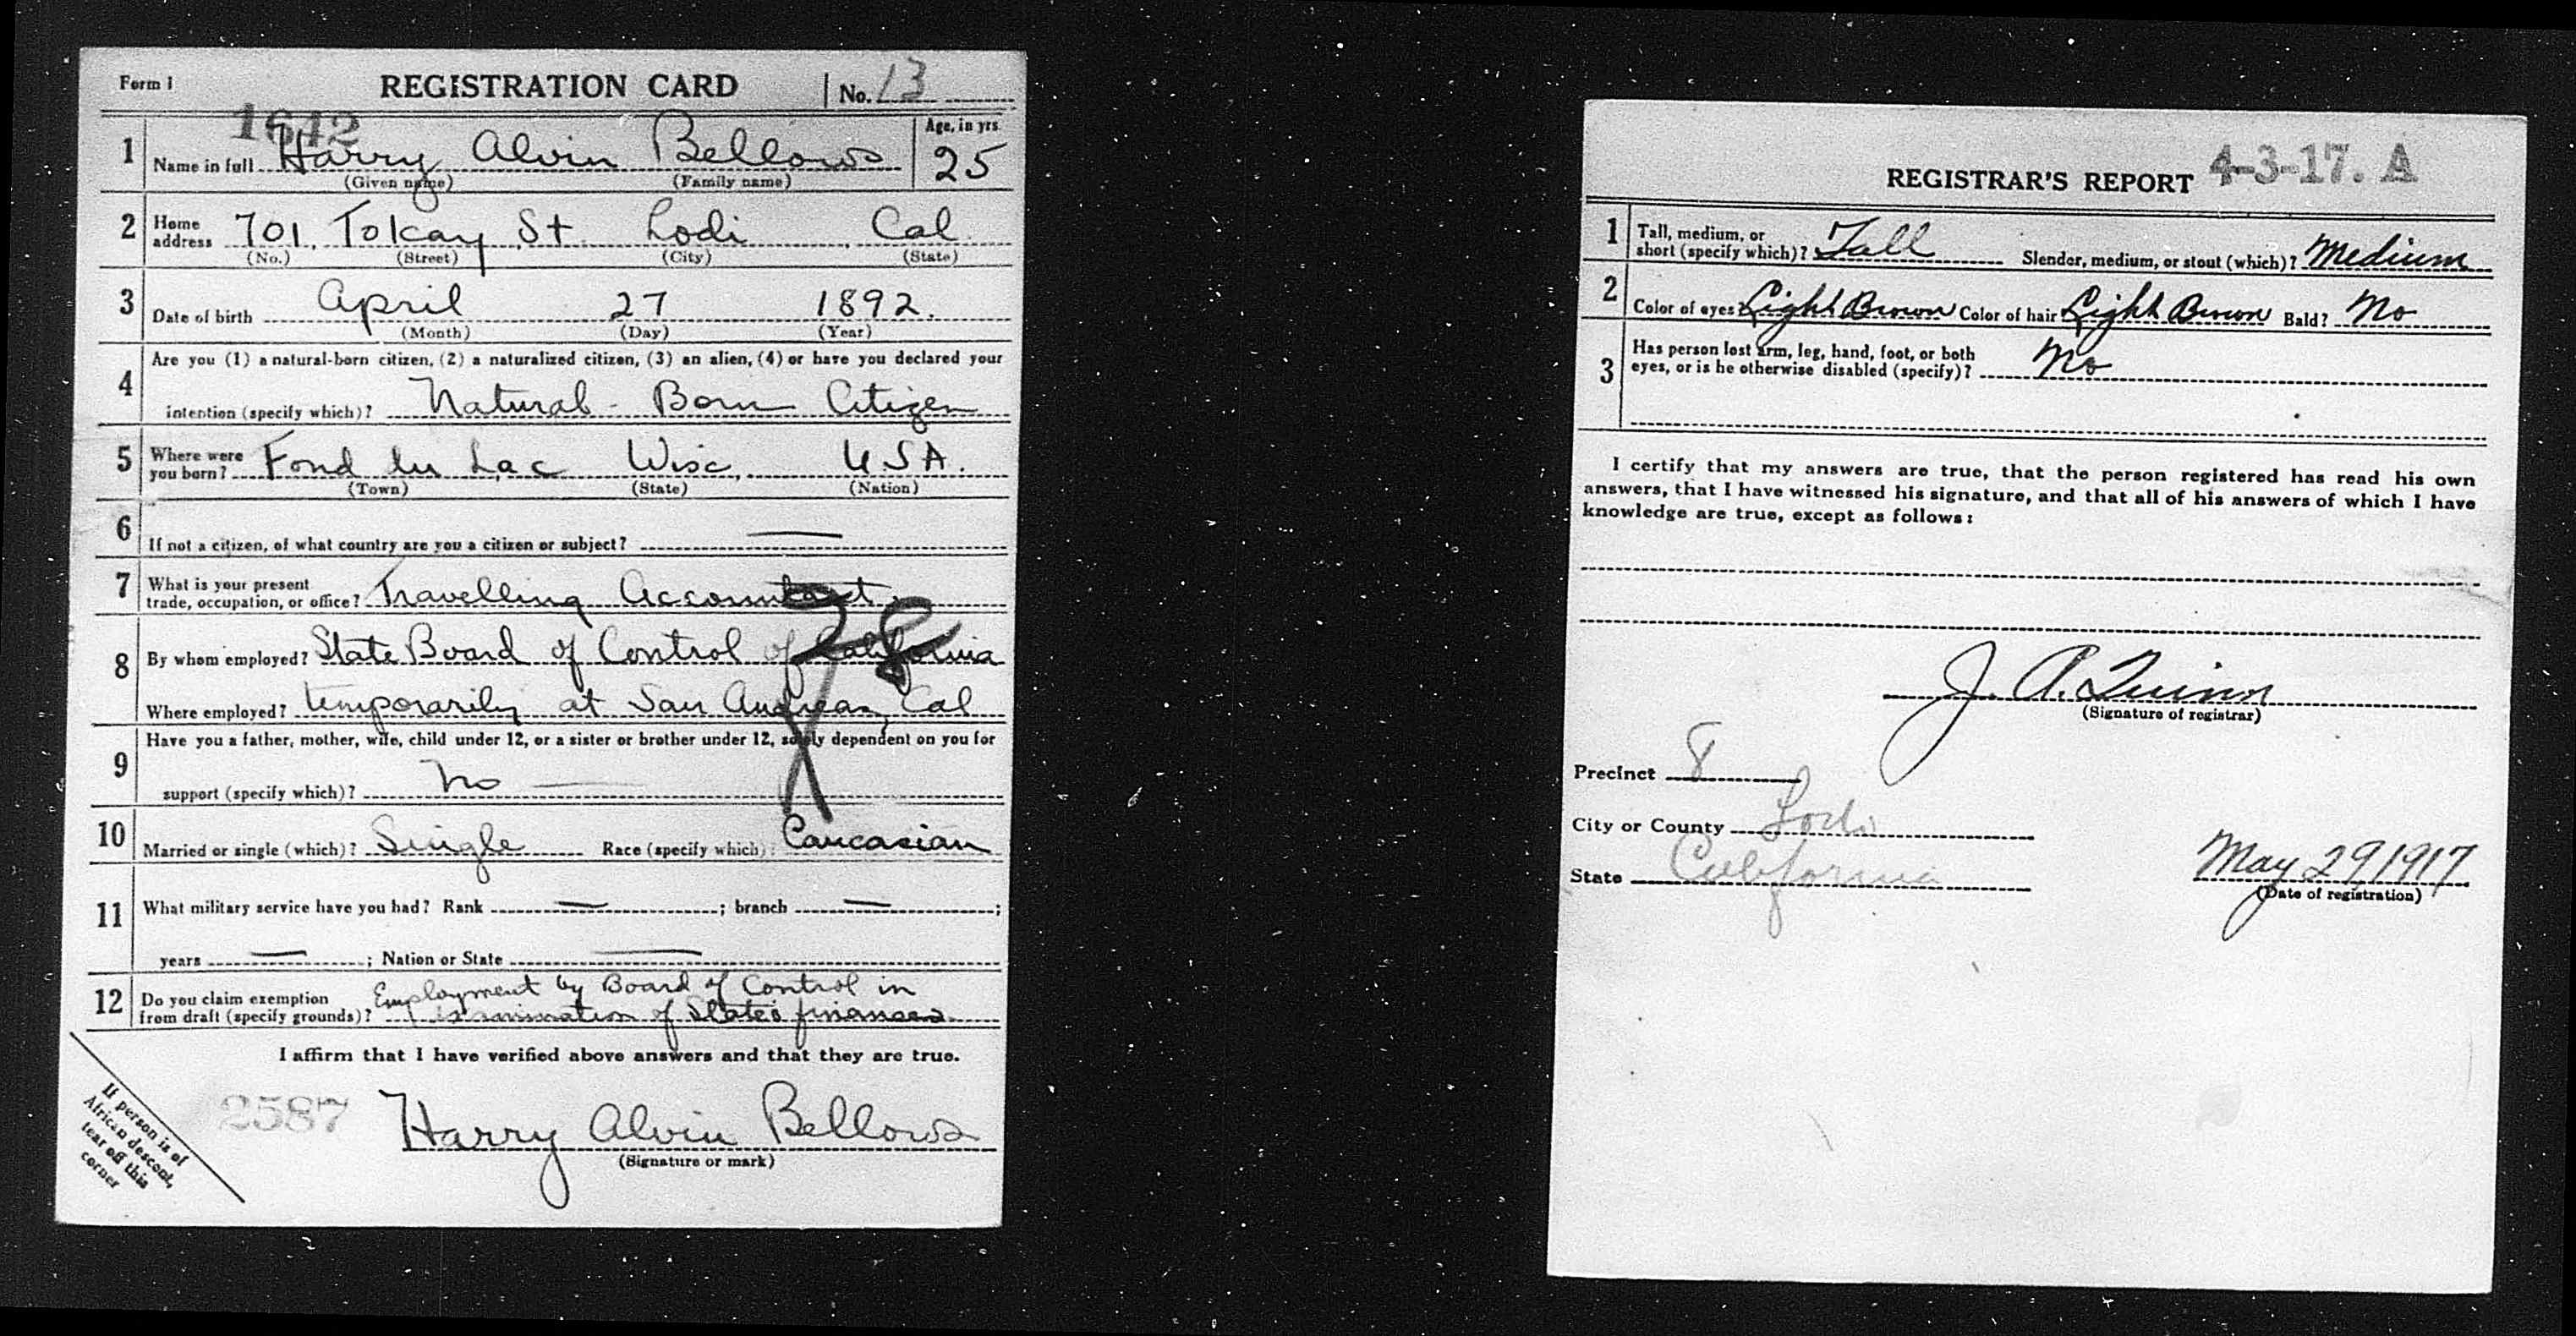 Form 1 REGISTRATION CARD No. 13
1642
1 Name in full Harry Alvin Bellows Age, in yrs 25
(Given name) (Family name)
2 Home address 701 Tokay St Lodi Cal
(No.) (Street) (City) (State)
3 Date of birth April 27 1892.
(Month) (Day) (Year)
Are you (1) a natural-born citizen, (2) a naturalized citizen, (3) an alien, (4) or have you declared your
4 intention (specify which)? Natural-Born Citizen
5 Where were you born? Fond du Lac Wisc, U.S.A.
(Town) (State) (Nation)
6 If not a citizen, of what country are you a citizen or subject? —
7 What is your present trade, occupation, or office? Travelling Accountant
8 By whom employed? State Board of Control of California
Where employed? temporarily at San Andreas, Cal
Have you a father, mother, wife, child under 12, or a sister or brother under 12, solely dependent on you for
9 support (specify which)? No —
10 Married or single (which)? Single Race (specify which) Caucasian
11 What military service have you had? Rank — ; branch — ;
years — ; Nation or State —
12 Do you claim exemption from draft (specify grounds)? Employment by Board of Control in
examination of State's finances
I affirm that I have verified above answers and that they are true.
2587 Harry Alvin Bellows
(Signature or mark)
If person is of
African descent,
tear off this
corner
REGISTRAR'S REPORT 4-3-17. A
1 Tall, medium, or short (specify which)? Tall Slender, medium, or stout (which)? Medium
2 Color of eyes Light Brown Color of hair Light Brown Bald? No
3 Has person lost arm, leg, hand, foot, or both
eyes, or is he otherwise disabled (specify)? No
I certify that my answers are true, that the person registered has read his own
answers, that I have witnessed his signature, and that all of his answers of which I have
knowledge are true, except as follows:
J. A. Quinn
(Signature of registrar)
Precinct 8
City or County Lodi
State California May 29, 1917
(Date of registration)